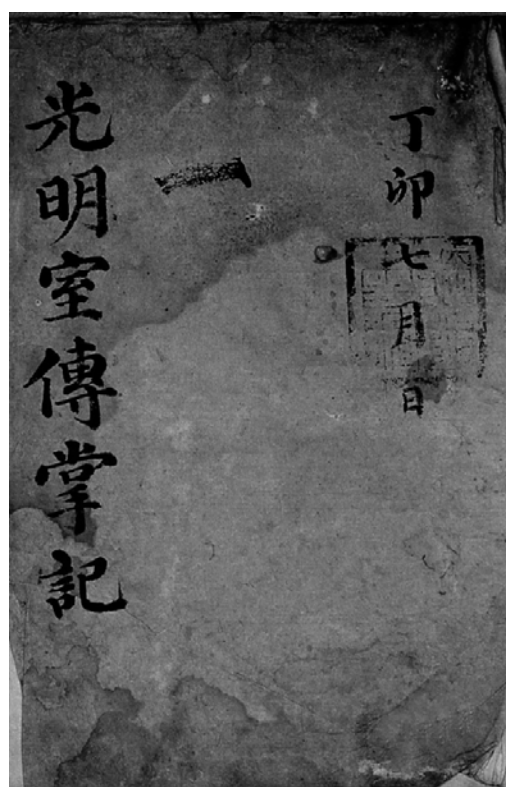 丁卯七月日
一
光明室傳掌記